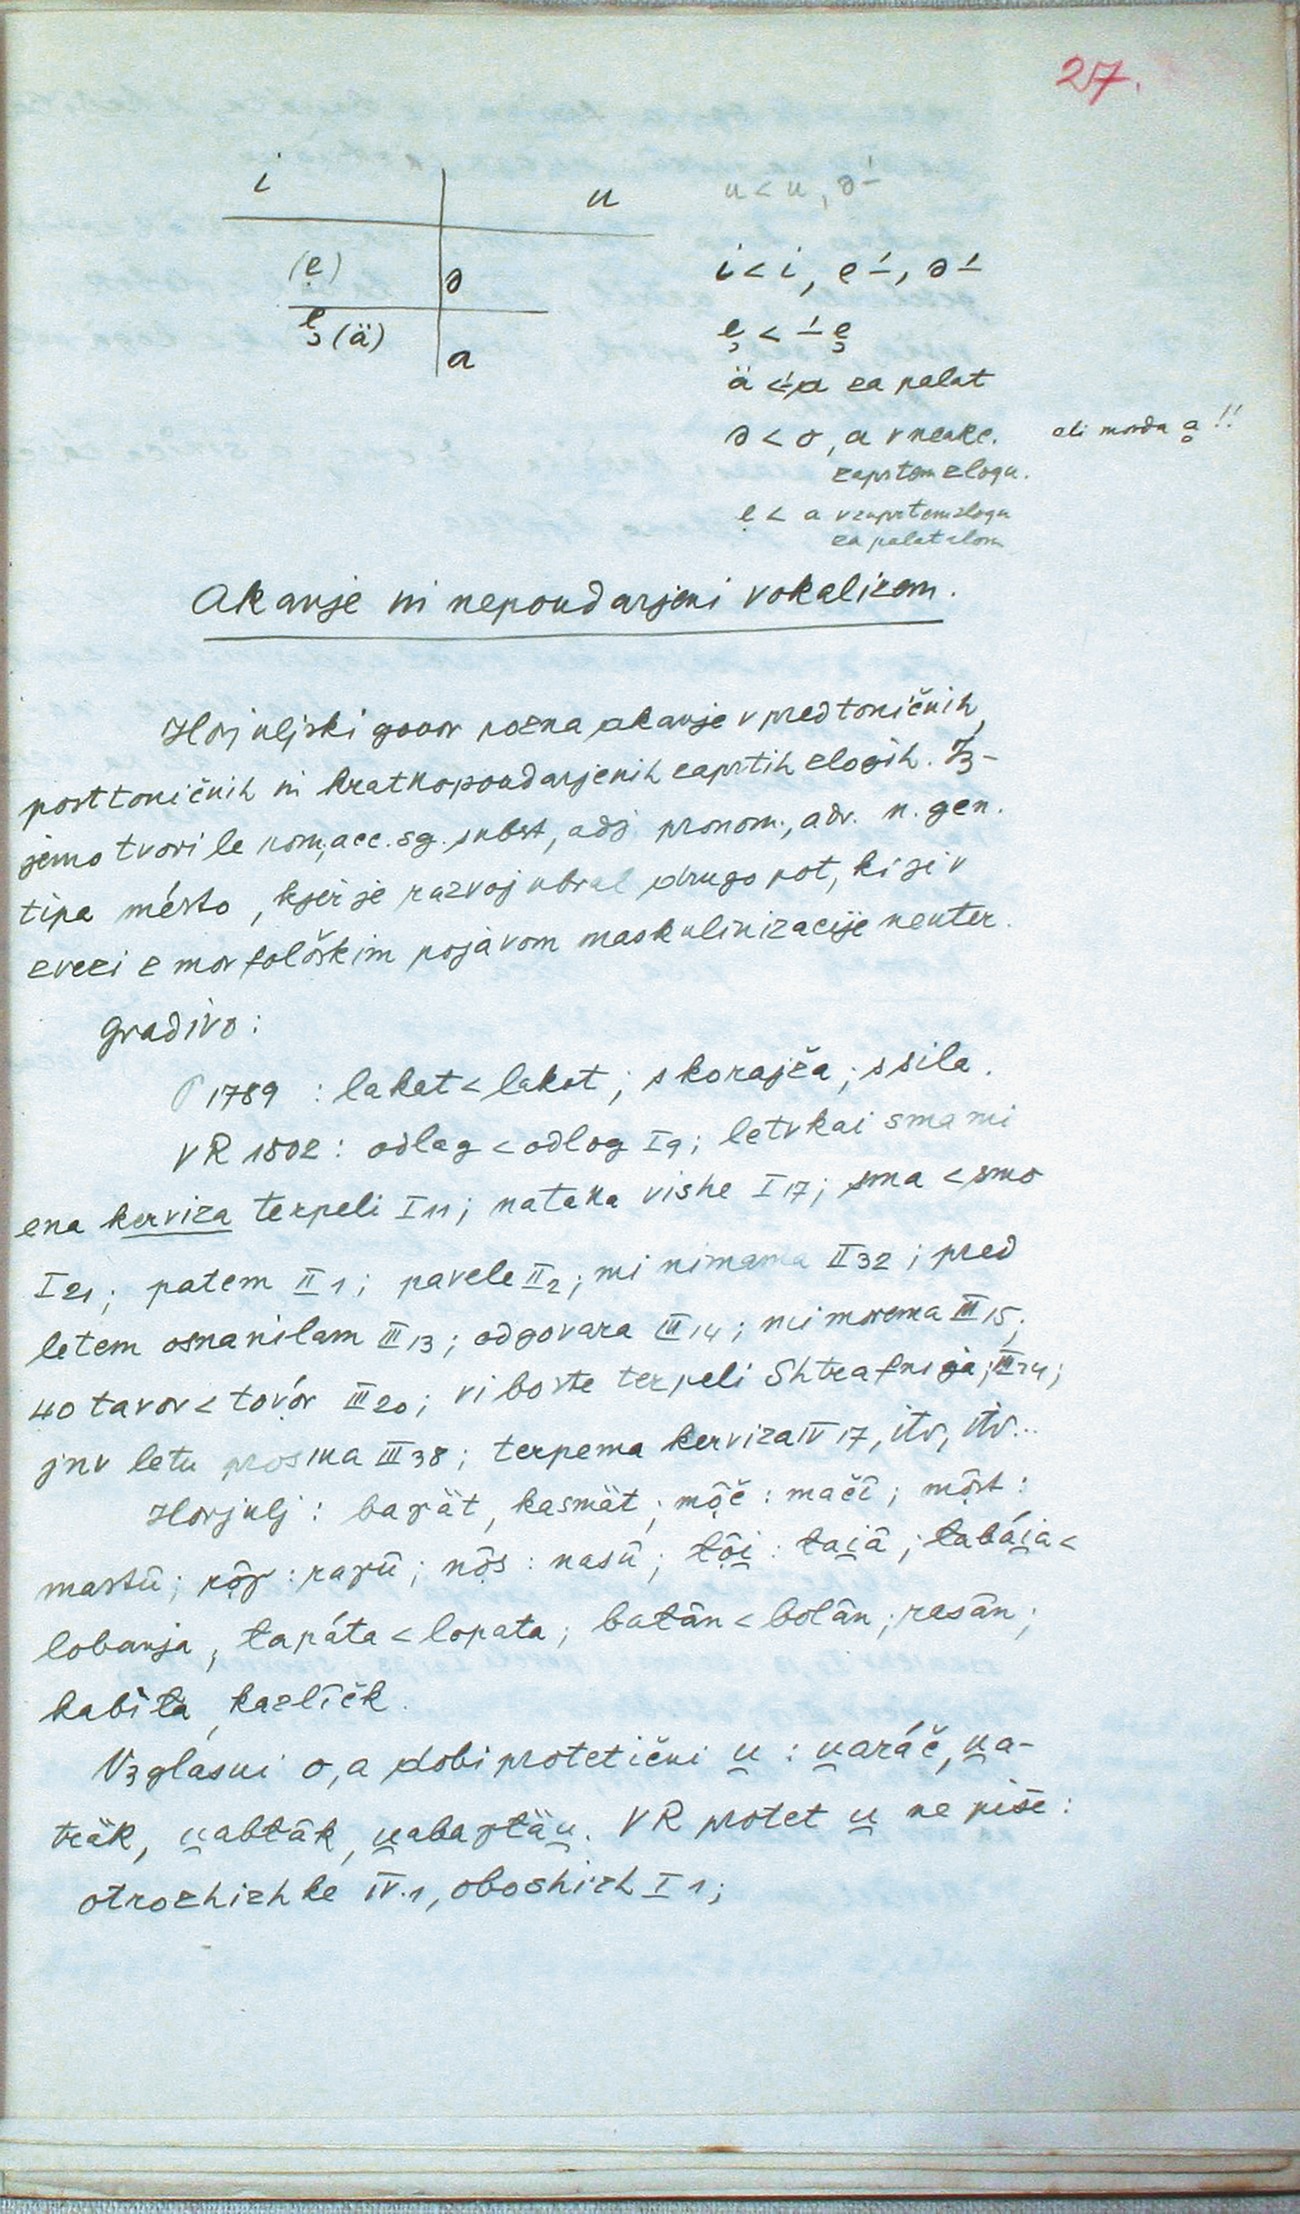 27.
i u u < u, ə –́
(ẹ) ə i < i, e –́, ə –́
ę (ä) a ę < –́ ę
ä < –́ a za palat
ə < o, a v neakc. ali morda ạ !!
zaprtem zlogu.
ẹ < a v zaprtem zlogu
za palatalom
Akanje in nepoudarjeni vokalizem.
Horjuljski govor pozna akanje v predtoničnih,
posttoničnih in kratkopoudarjenih zaprtih zlogih. Iz-
jemo tvori le nom, acc. sg. subst, adj pronom., adv. n. gen.
tipa mésto, kjer je razvoj ubral drugo pot, ki je v
zvezi z morfološkim pojavom maskulinizacije neuter.
Gradivo:
P 1789 : lakat < lakot ; skorajža ; ssila.
VR 1802 : odlag < odlog I 9 ; letvkai sma mi
ena kerviza terpeli I 11 ; nataka vishe I 17 ; sma < smo
I 21 ; patem II 1 ; pavele II 2 ; mi nimama II 32 ; pred
letem osnanilam III 13 ; odgovara III 14 ; mi morema III 15 ;
40 tavor < tovọ́r III 20 ; vi boste terpeli Shtrafniga ; III 24 ;
jnv letu prosma III 38 ; terpema kerviza IV 17, itd, itd...
Horjulj : baγät, kasmät ; mọ̑č : mačȋ ; mọ̑st :
mastȗ ; rọ̑γ : raγȗ ; nọ̑s : nasȗ ; tọ̑i̯ : tai̯ȃ ; łabái̯a <
lobanja, łapáta < lopata ; batȃn < bolȃn ; rasȃn ;
kabìła, kazlȋčk.
Vzglasni o, a dobi protetični u̯ : u̯aráč, u̯a-
träk, u̯abłȃk, u̯abaγłäu̯. VR protet u̯ ne piše :
otrozhizhke IV. 1, oboshizh I 1 ;